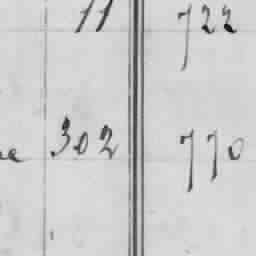 11 722
302 770